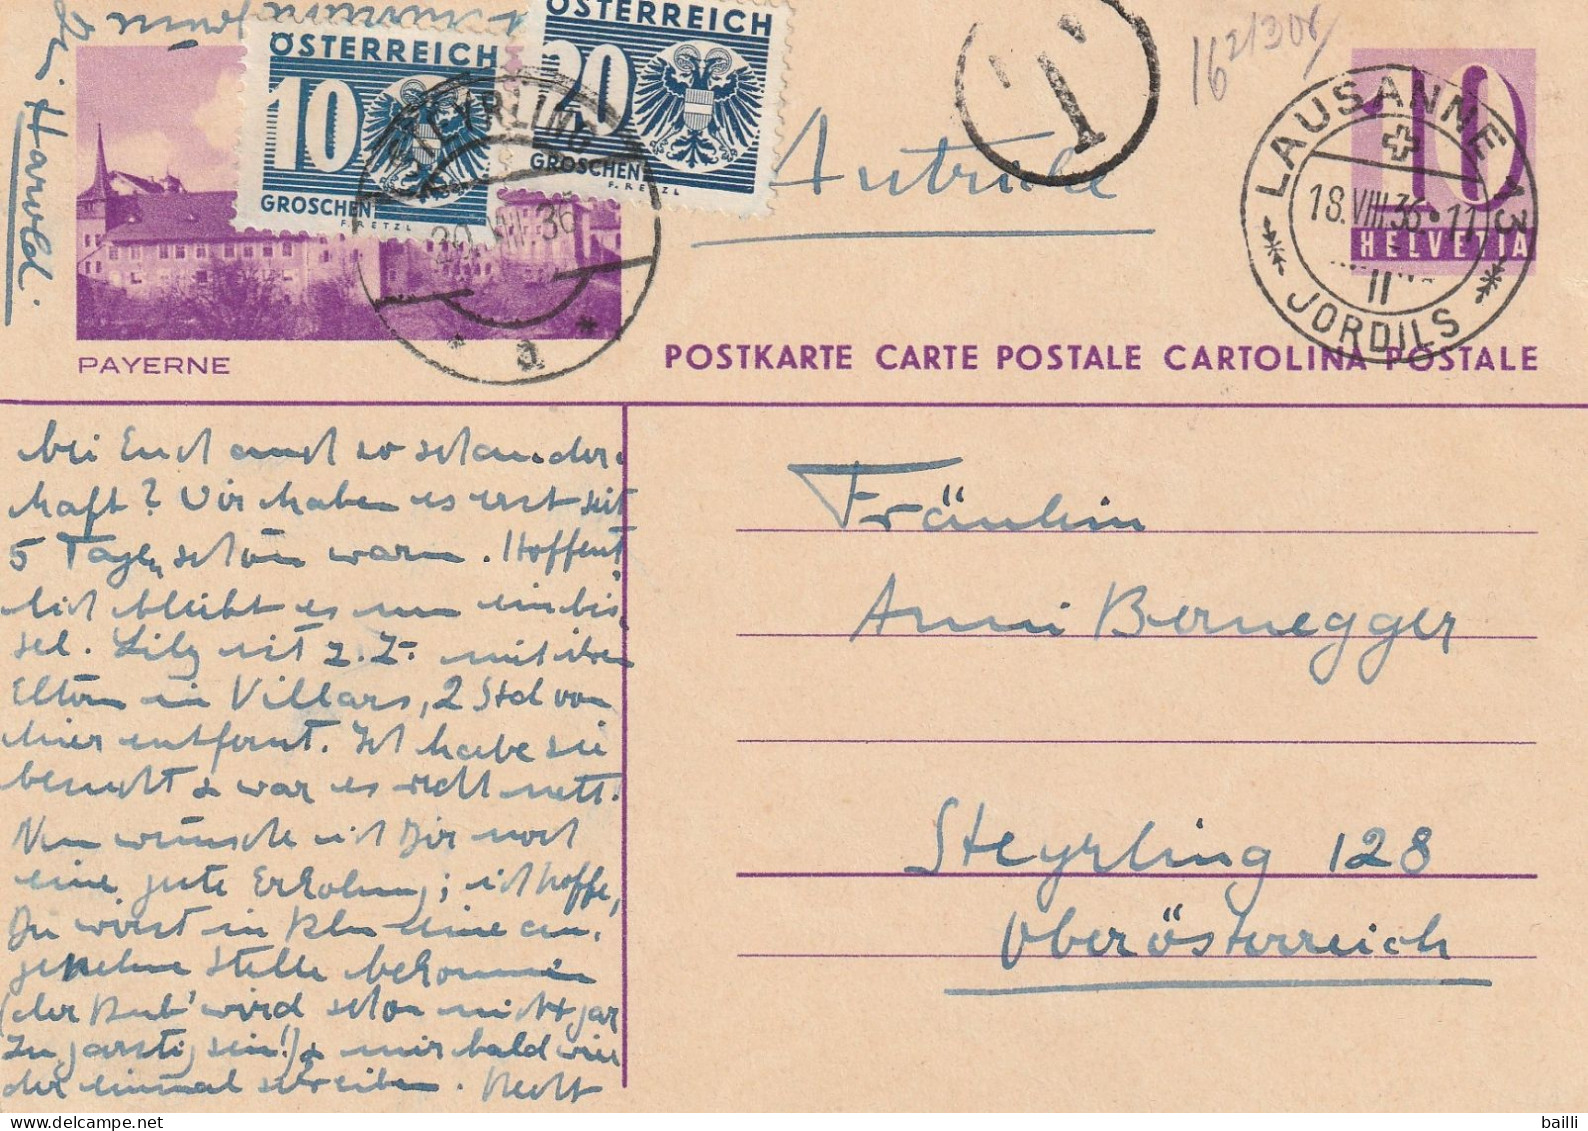 ÖSTERREICH
20
GROSCHEN
F. RETZL
ÖSTERREICH
10
GROSCHEN
F. RETZL
STEYRLING
20.VIII.36
a
T
Autriche
1621306/
LAUSANNE 13
18.VIII.36.-11
II
JORDILS
10
HELVETIA
PAYERNE
POSTKARTE CARTE POSTALE CARTOLINA POSTALE
Harwold.
bei Euch auch so schauder-
haft? Wir haben es erst seit
5 Tagen schön warm. Hoffent
lich bleibt es nun ein bis,
sel. Lily ist z. Z. mit ihren
Eltern in Villars, 2 Std von
hier entfernt. Ich habe sie
besucht & war es recht nett.
Nun wünsche ich Dir noch
eine gute Erholung; ich hoffe,
Du wirst in eine an,
genehme Stelle bekommen
(der Bub' wird schon nicht gar
zu garstig sein!) & mir bald wie
der einmal schreiben. Recht
Fräulein
Anni Bernegger
Steyrling 128
Oberösterreich
bailli